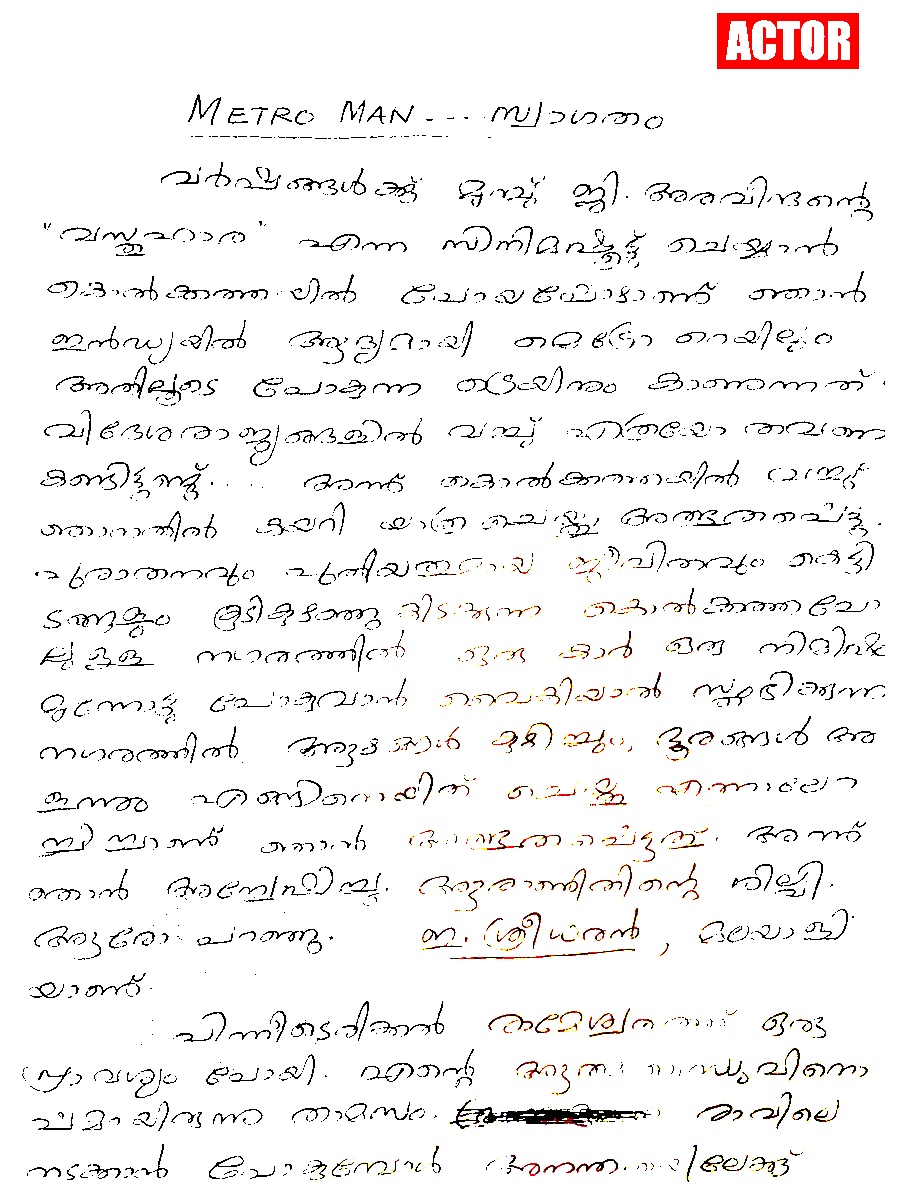 ACTOR
METRO MAN --- സ്വാഗതം
വർഷങ്ങൾക്കു് മുമ്പ് ജി. അരവിന്ദന്റെ
"വാസ്തുഹാര" എന്ന സിനിമഷൂട്ട് ചെയ്യാൻ
കൊൽക്കത്തയിൽ പോയപ്പോഴാണ് ഞാൻ
ഇൻഡ്യയിൽ ആദ്യമായി മെട്രോ റെയിലും
അതിലൂടെ പോകുന്ന ട്രെയിനും കാണുന്നത്.
വിദേശരാജ്യങ്ങളിൽ വച്ച് എത്രയോ തവണ
കണ്ടിട്ടുണ്ട്.... അന്ന് കൊൽക്കത്തയിൽ വച്ച്
ഞാനതിൽ കയറി യാത്ര ചെയ്തു അത്ഭുതപ്പെട്ടു.
പുരാതനവും പുതിയതുമായ ജീവിതവും കെട്ടി
ടങ്ങളും കൂടികുഴഞ്ഞു കിടക്കുന്ന കൊൽക്കത്തപോ
ലുള്ള നഗരത്തിൽ ഒരു കാർ ഒരു നിമിഷം
മുന്നോട്ടു പോകുവാൻ വൈകിയാൽ സ്തംഭിക്കുന്ന
നഗരത്തിൽ ആളുകൾ കുഴിച്ചും, ദൂരങ്ങൾ അ
ളന്നും എങ്ങിനെയിത് ചെയ്തു എന്നാലോ
ചിച്ചാണ് ഞാൻ അത്ഭുതപ്പെട്ടത്. അന്ന്
ഞാൻ അന്വേഷിച്ചു. ആരാണിതിന്റെ ശില്പി.
ആരോ പറഞ്ഞു. ഇ. ശ്രീധരൻ, മലയാളി
യാണ്.
പിന്നീടൊരിക്കൽ രാമേശ്വരത്ത് ഒരു
പ്രാവശ്യം പോയി. എന്റെ ആത്മ ബന്ധുവിനൊ
പ്പമായിരുന്നു താമസം. രാവിലെ
നടക്കാൻ പോകുമ്പോൾ